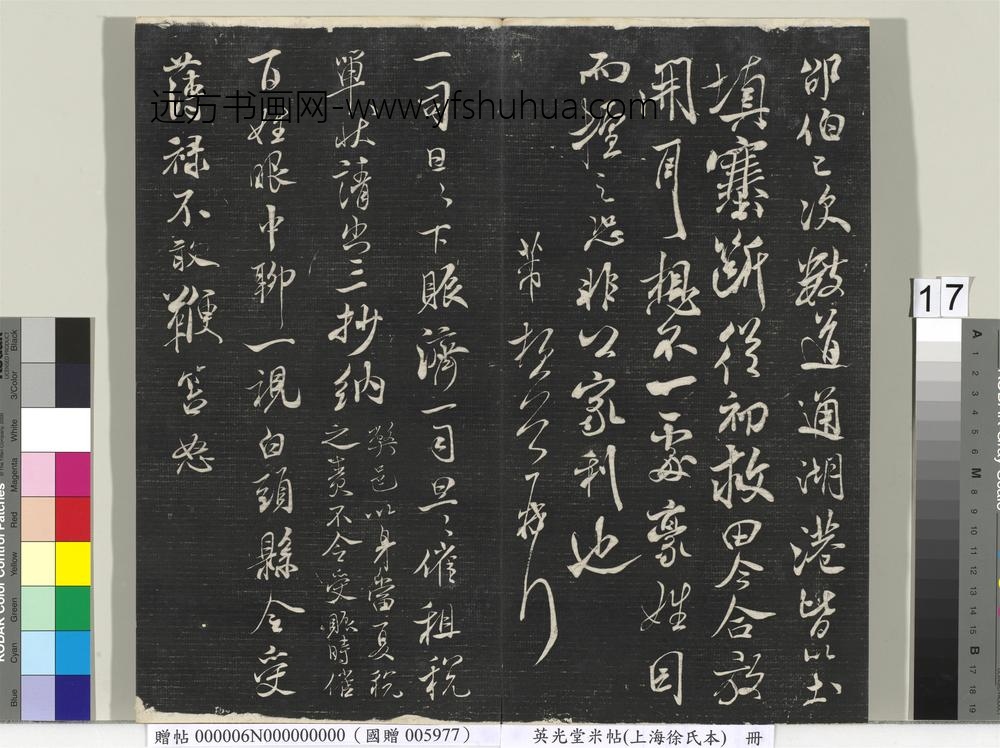 邵伯已次數道通湖港皆以土
填塞斷從初救田今合放
開 想不一處豪姓因
而擅之恐非公家利也
芾
一司旦々下賑濟一司旦々催租税
單狀請出三抄納
弊邑以身當夏税
之責不令受賑時催
百姓眼中聊一視白頭縣令受
薄禄不敢鞭笞怒
远方书画网-www.yfshuhua.com
17
贈帖 000006N000000000（國贈 005977）
英光堂米帖(上海徐氏本) 冊
KODAK Color Control Patches
Blue
Cyan
Green
Yellow
Red
Magenta
White
3/Color
Black
A 1 2 3 4 5 6 M 8 9 10 11 12 13 14 15 B 17 18 19